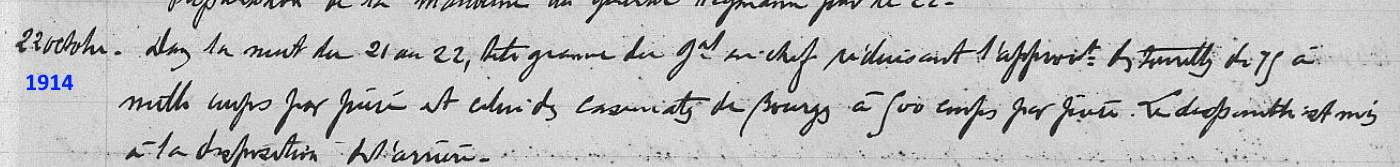 préparation de la manœuvre du par le 22.
22 octobre. Dans la nuit du 21 au 22, télégramme du Gal en chef réduisant l'approvt des tourelles de 75 à
1914
mille coups par pièce et celui des casemates de Bourges à 500 coups par pièce. Le disponible est mis
à la disposition de l'arrière.